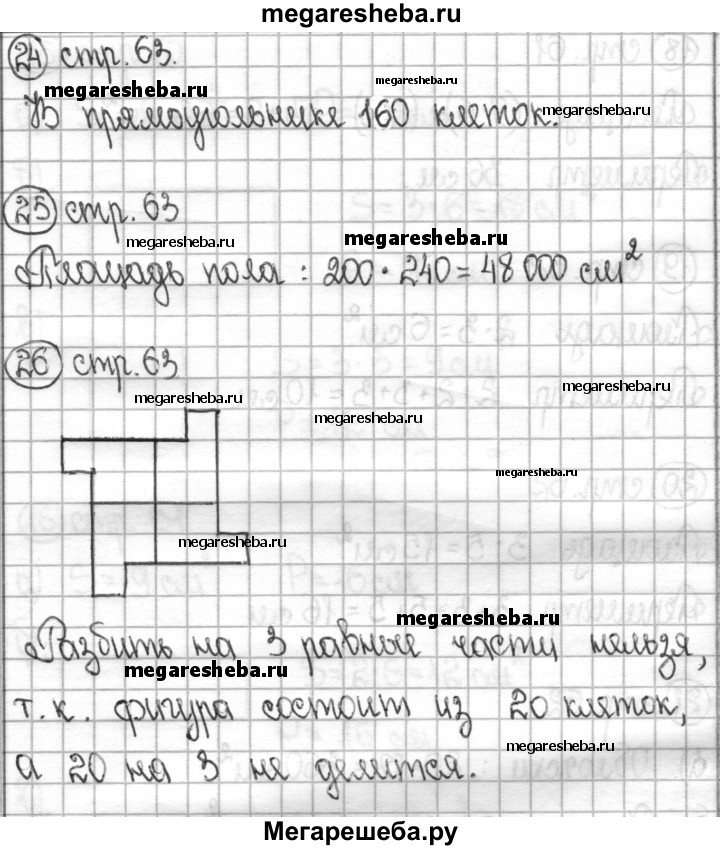 megaresheba.ru
24 стр. 63.
megaresheba.ru
megaresheba.ru
В прямоугольнике 160 клеток.
megaresheba.ru
25 стр. 63
megaresheba.ru
megaresheba.ru
Площадь пола : 200 · 240 = 48 000 см²
26 стр. 63
megaresheba.ru
megaresheba.ru
megaresheba.ru
megaresheba.ru
megaresheba.ru
megaresheba.ru
Разбить на 3 равные части нельзя,
megaresheba.ru
т. к. фигура состоит из 20 клеток,
megaresheba.ru
а 20 на 3 не делится.
Мегарешеба.ру